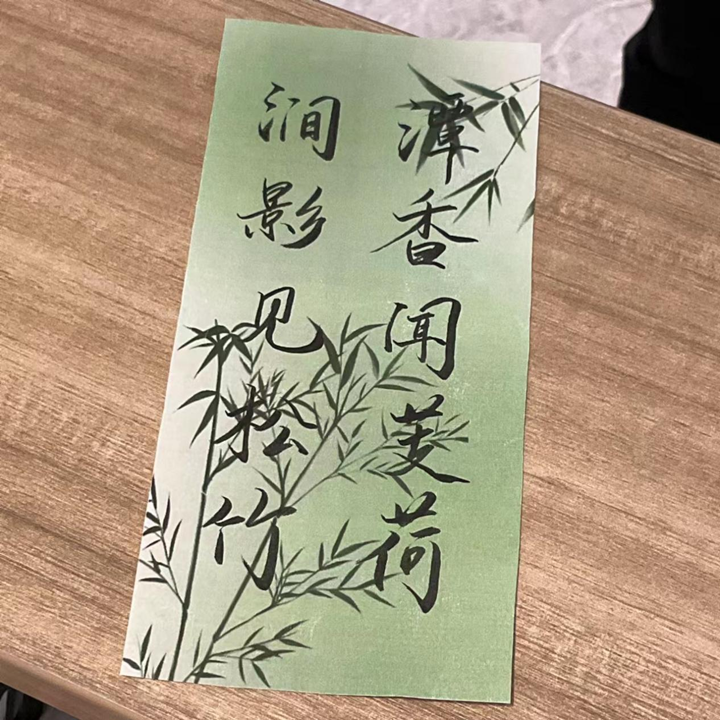 潭香闻芰荷
涧影见松竹